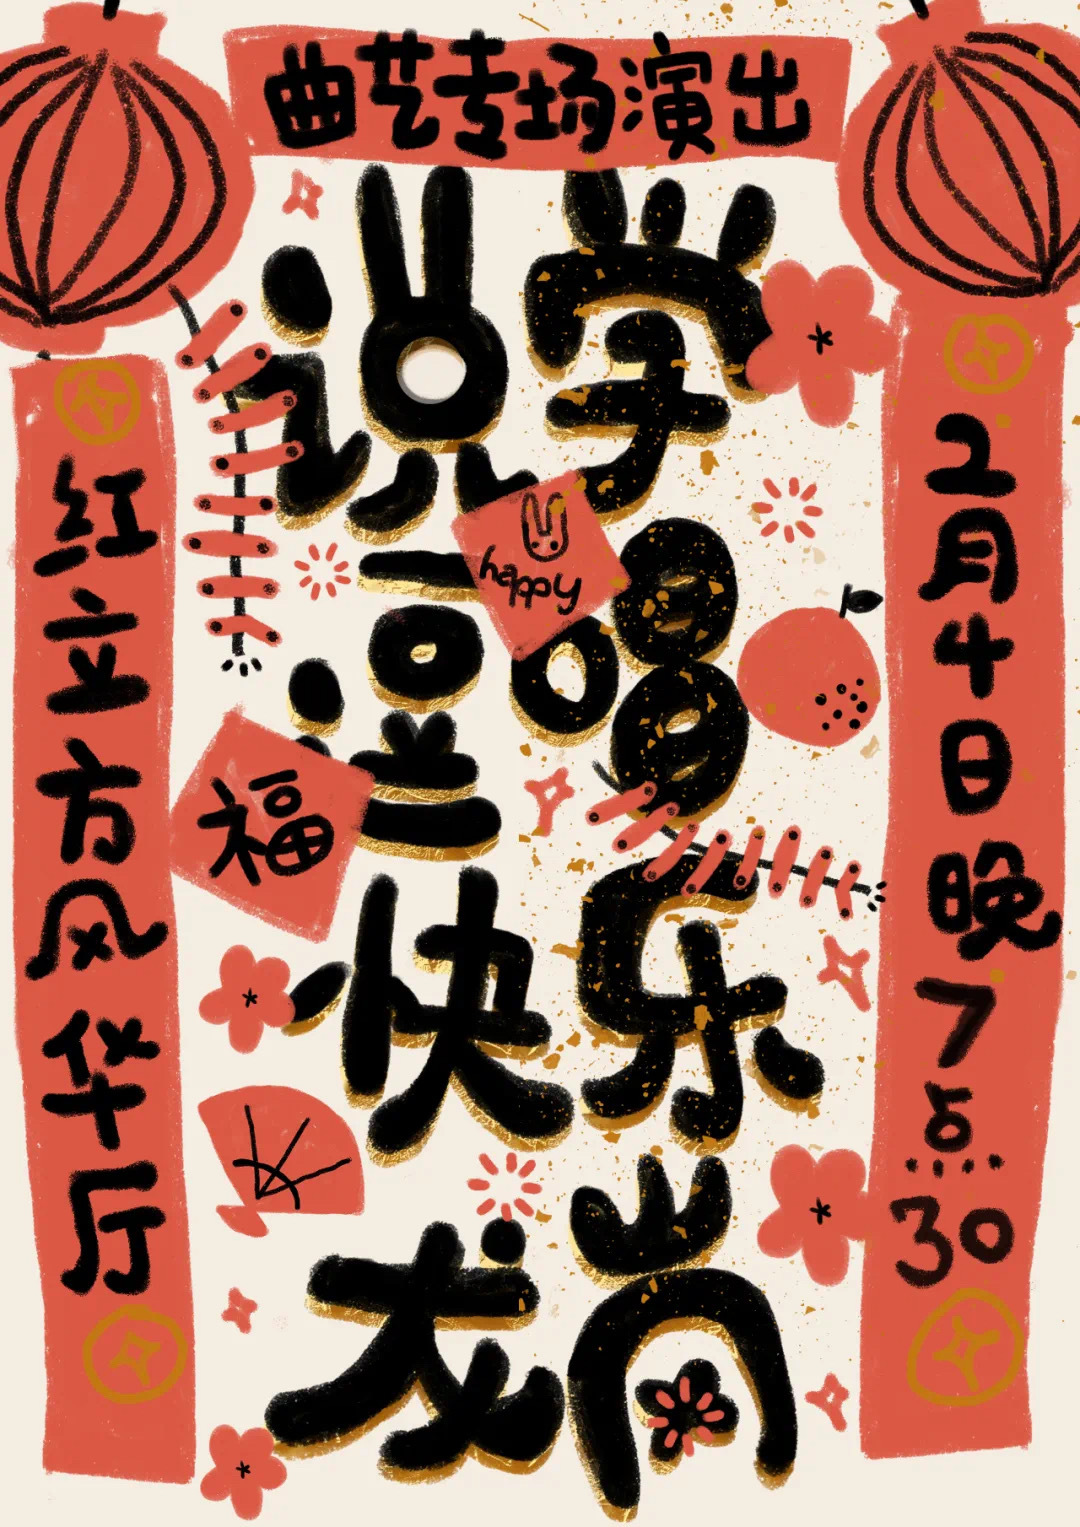 曲艺专场演出
说学
逗唱
快乐
龙岗
happy
福
红立方风华厅
2月4日晚7点30